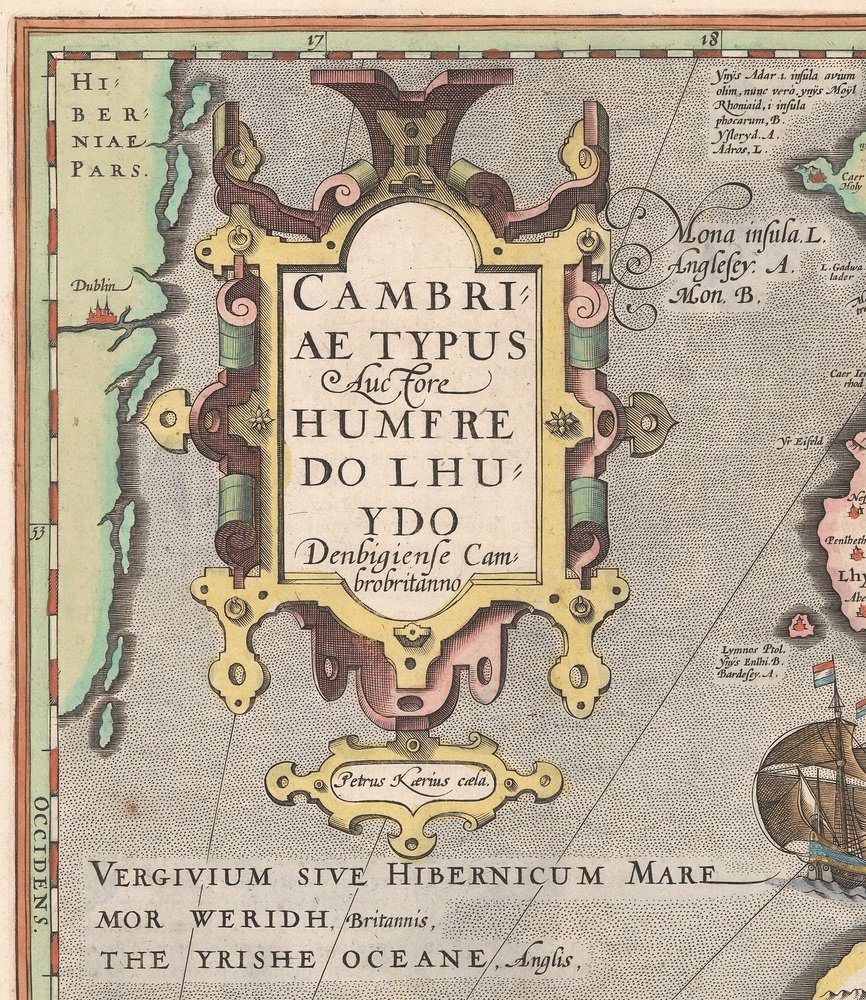 17
18
HI⸗
BER⸗
NIAE
PARS.
Dublin
53
OCCIDENS.
CAMBRI⸗
AE TYPUS
Auctore
HUMFRE
DO LHU⸗
YDO
Denbigienſe Cam⸗
brobritanno
Petrus Kærius cæla.
Ynÿs Adar i. inſula avium
olim, nunc verò ynÿs Moyl
Rhoniaid, i inſula
phocarum, B.
Yſſeryd. A.
Adros, L.
Caer
Holy
Mona inſula. L.
Angleſey. A.
Mon. B.
L. Gadwa
lader
Caer Ier
rhod
Yr Eifeld
Nef
Penlheth
Lhy
Abe
Lymnos Ptol.
Ynÿs Enlhi. B.
Bardeſey. A.
VERGIVIUM SIVE HIBERNICUM MARE
MOR WERIDH, Britannis,
THE YRISHE OCEANE, Anglis,